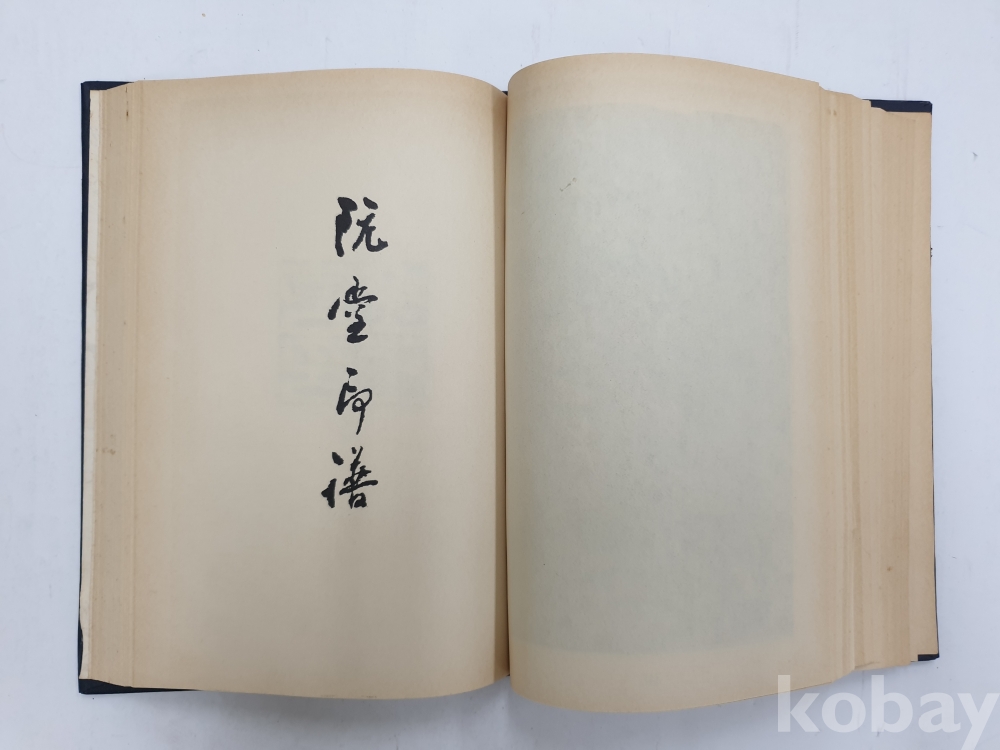 阮堂印譜
kobay